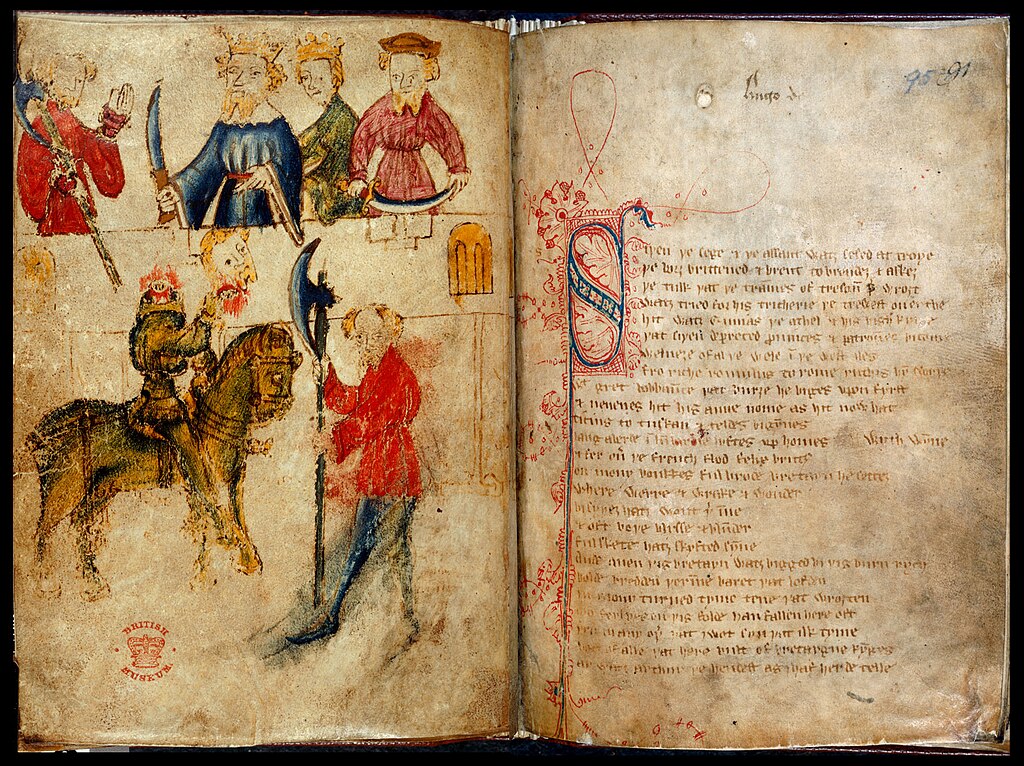 BRITISH
MUSEUM
Hugo de
95 91
Siþen þe sege & þe assaut watz sesed at troye
þe borȝ brittened & brent to brondeȝ & askez
þe tulk þat þe trammes of tresoun þ̉ wroȝt
watz tried for his tricherie þe trewest on erthe
hit watz Ennias þe athel & his highe kynde
þat siþen depreced prouinces & patrounes bicome
welneȝe of al þe wele ī þe west iles
fro riche romulus to rome ricchis hȳ swyþe
gret bobbaūce þat burȝe he biges vpon fyrst
& neuenes hit his aune nome as hit now hat
ticius to tuskan & teldes bigȳnes
lyftes vp homes wyth wȳne
& fer oū þe french flod felix brutꝰ
on mony bonkkes ful brode bretayn he settez
where werre & wrake & wonder
bi syþez hatz wont þ̉ īne
& oft boþe blysse & blunder
ful skete hatz skyfted sȳne
Ande quen þis bretayn watz bigged bi þis burn rych
bolde bredden þ̉īne baret þat lofden
in mony turned tyme tene þat wroȝten
mo ferlyes on þis folde han fallen here oft
þen in any oþ̉ þat I wot syn þat ilk tyme
bot of alle þat here bult of bretaygne kȳges
ay watz arthur þe hendest as I haf herde telle